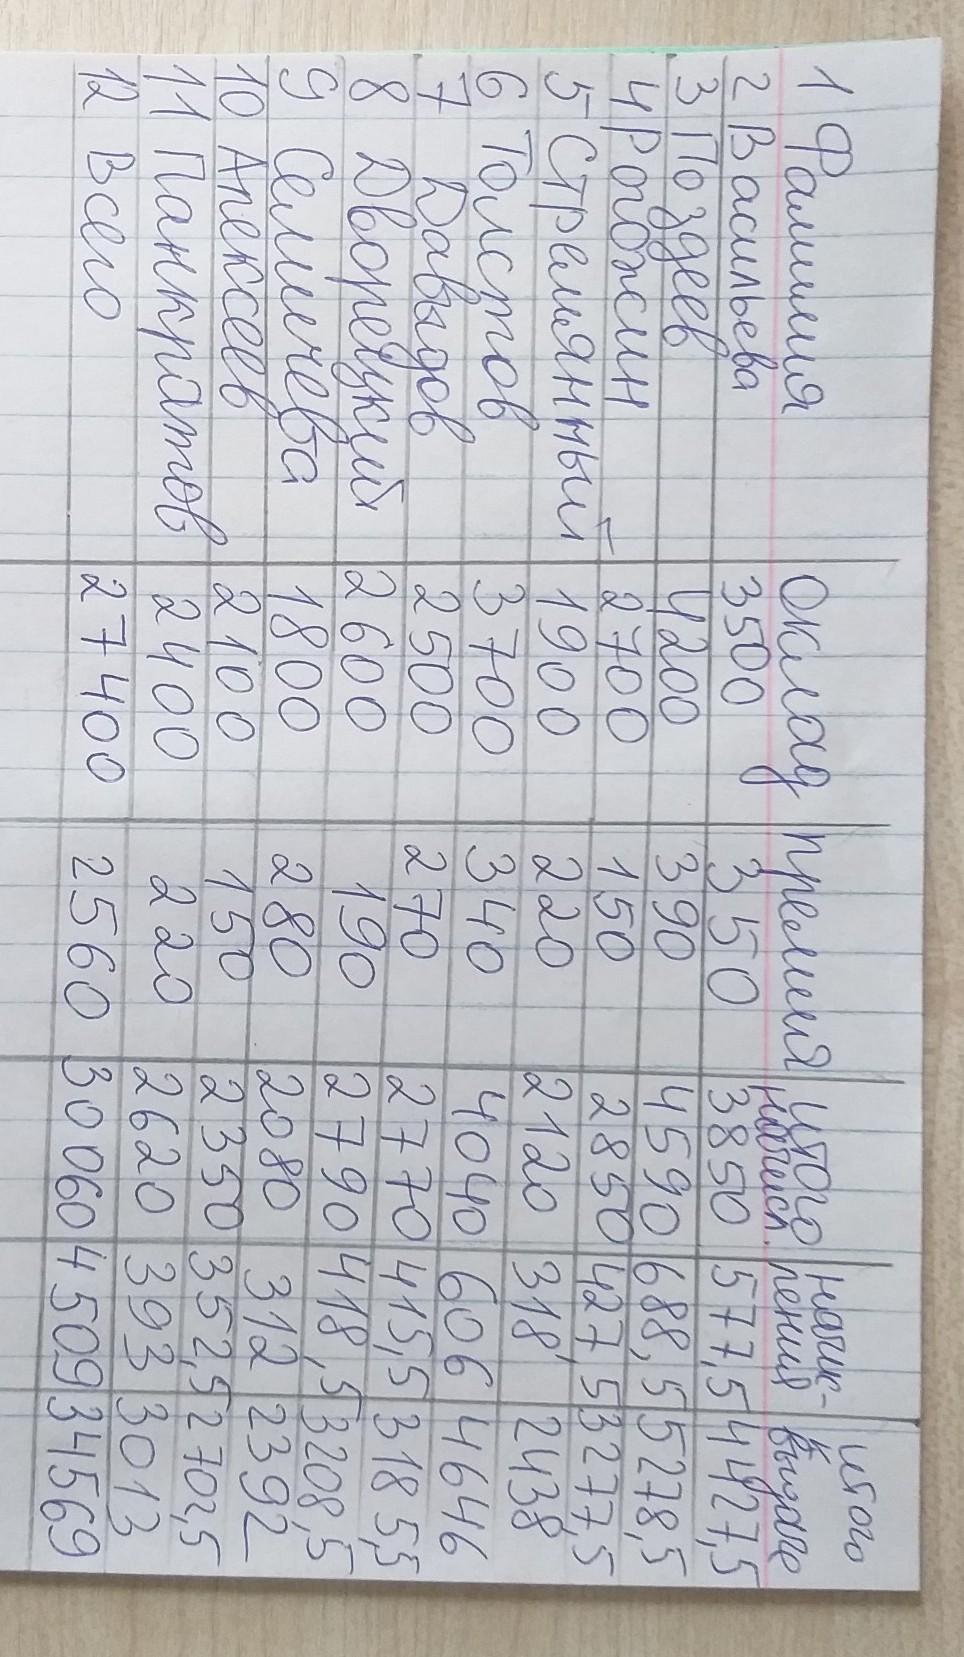 1 Фамилия Оклад премия итого начисл. начис- ления итого к выдаче
2 Васильева 3500 350 3850 577,5 4427,5
3 Поздеев 4200 390 4590 688,5 5278,5
4 Рогожин 2700 150 2850 427,5 3277,5
5 Стремянный 1900 220 2120 318 2438
6 Толстов 3700 340 4040 606 4646
7 Давыдов 2500 270 2770 415,5 3185,5
8 Дворецкий 2600 190 2790 418,5 3208,5
9 Селичева 1800 280 2080 312 2392
10 Алексеев 2100 150 2350 352,5 2702,5
11 Панкратов 2400 220 2620 393 3013
12 Всего 27400 2560 30060 4509 34569